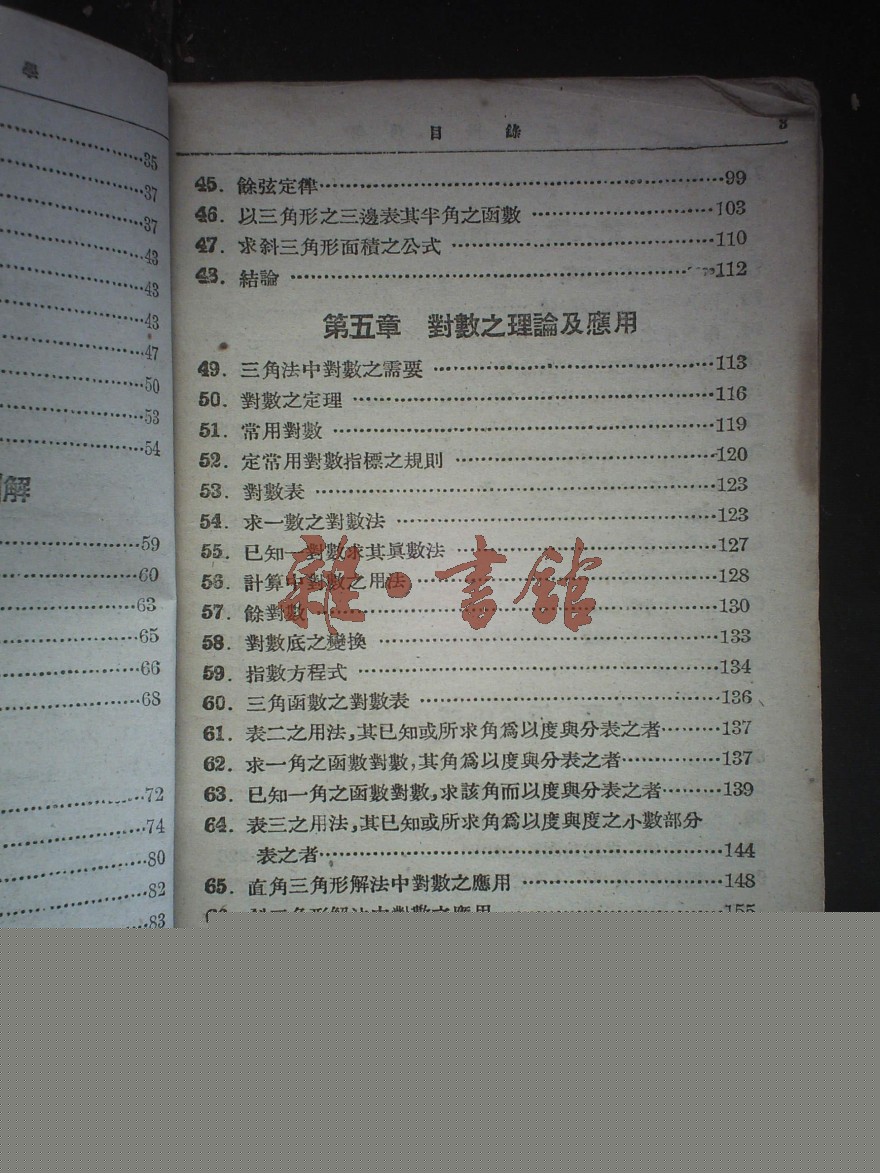 學
35
37
37
43
43
43
47
50
53
54
解
59
60
63
65
66
68
72
74
80
82
83
目 錄 3
45. 餘弦定律 99
46. 以三角形之三邊表其半角之函數 103
47. 求斜三角形面積之公式 110
48. 結論 112
第五章 對數之理論及應用
49. 三角法中對數之需要 113
50. 對數之定理 116
51. 常用對數 119
52. 定常用對數指標之規則 120
53. 對數表 123
54. 求一數之對數法 123
55. 已知一對數求其眞數法 127
56. 計算中對數之用法 128
57. 餘對數 130
58. 對數底之變換 133
59. 指數方程式 134
60. 三角函數之對數表 136
61. 表二之用法,其已知或所求角爲以度與分表之者 137
62. 求一角之函數對數,其角爲以度與分表之者 137
63. 已知一角之函數對數,求該角而以度與分表之者 139
64. 表三之用法,其已知或所求角爲以度與度之小數部分
表之者 144
65. 直角三角形解法中對數之應用 148
66. 斜三角形解法中對數之應用 155
雜·書館